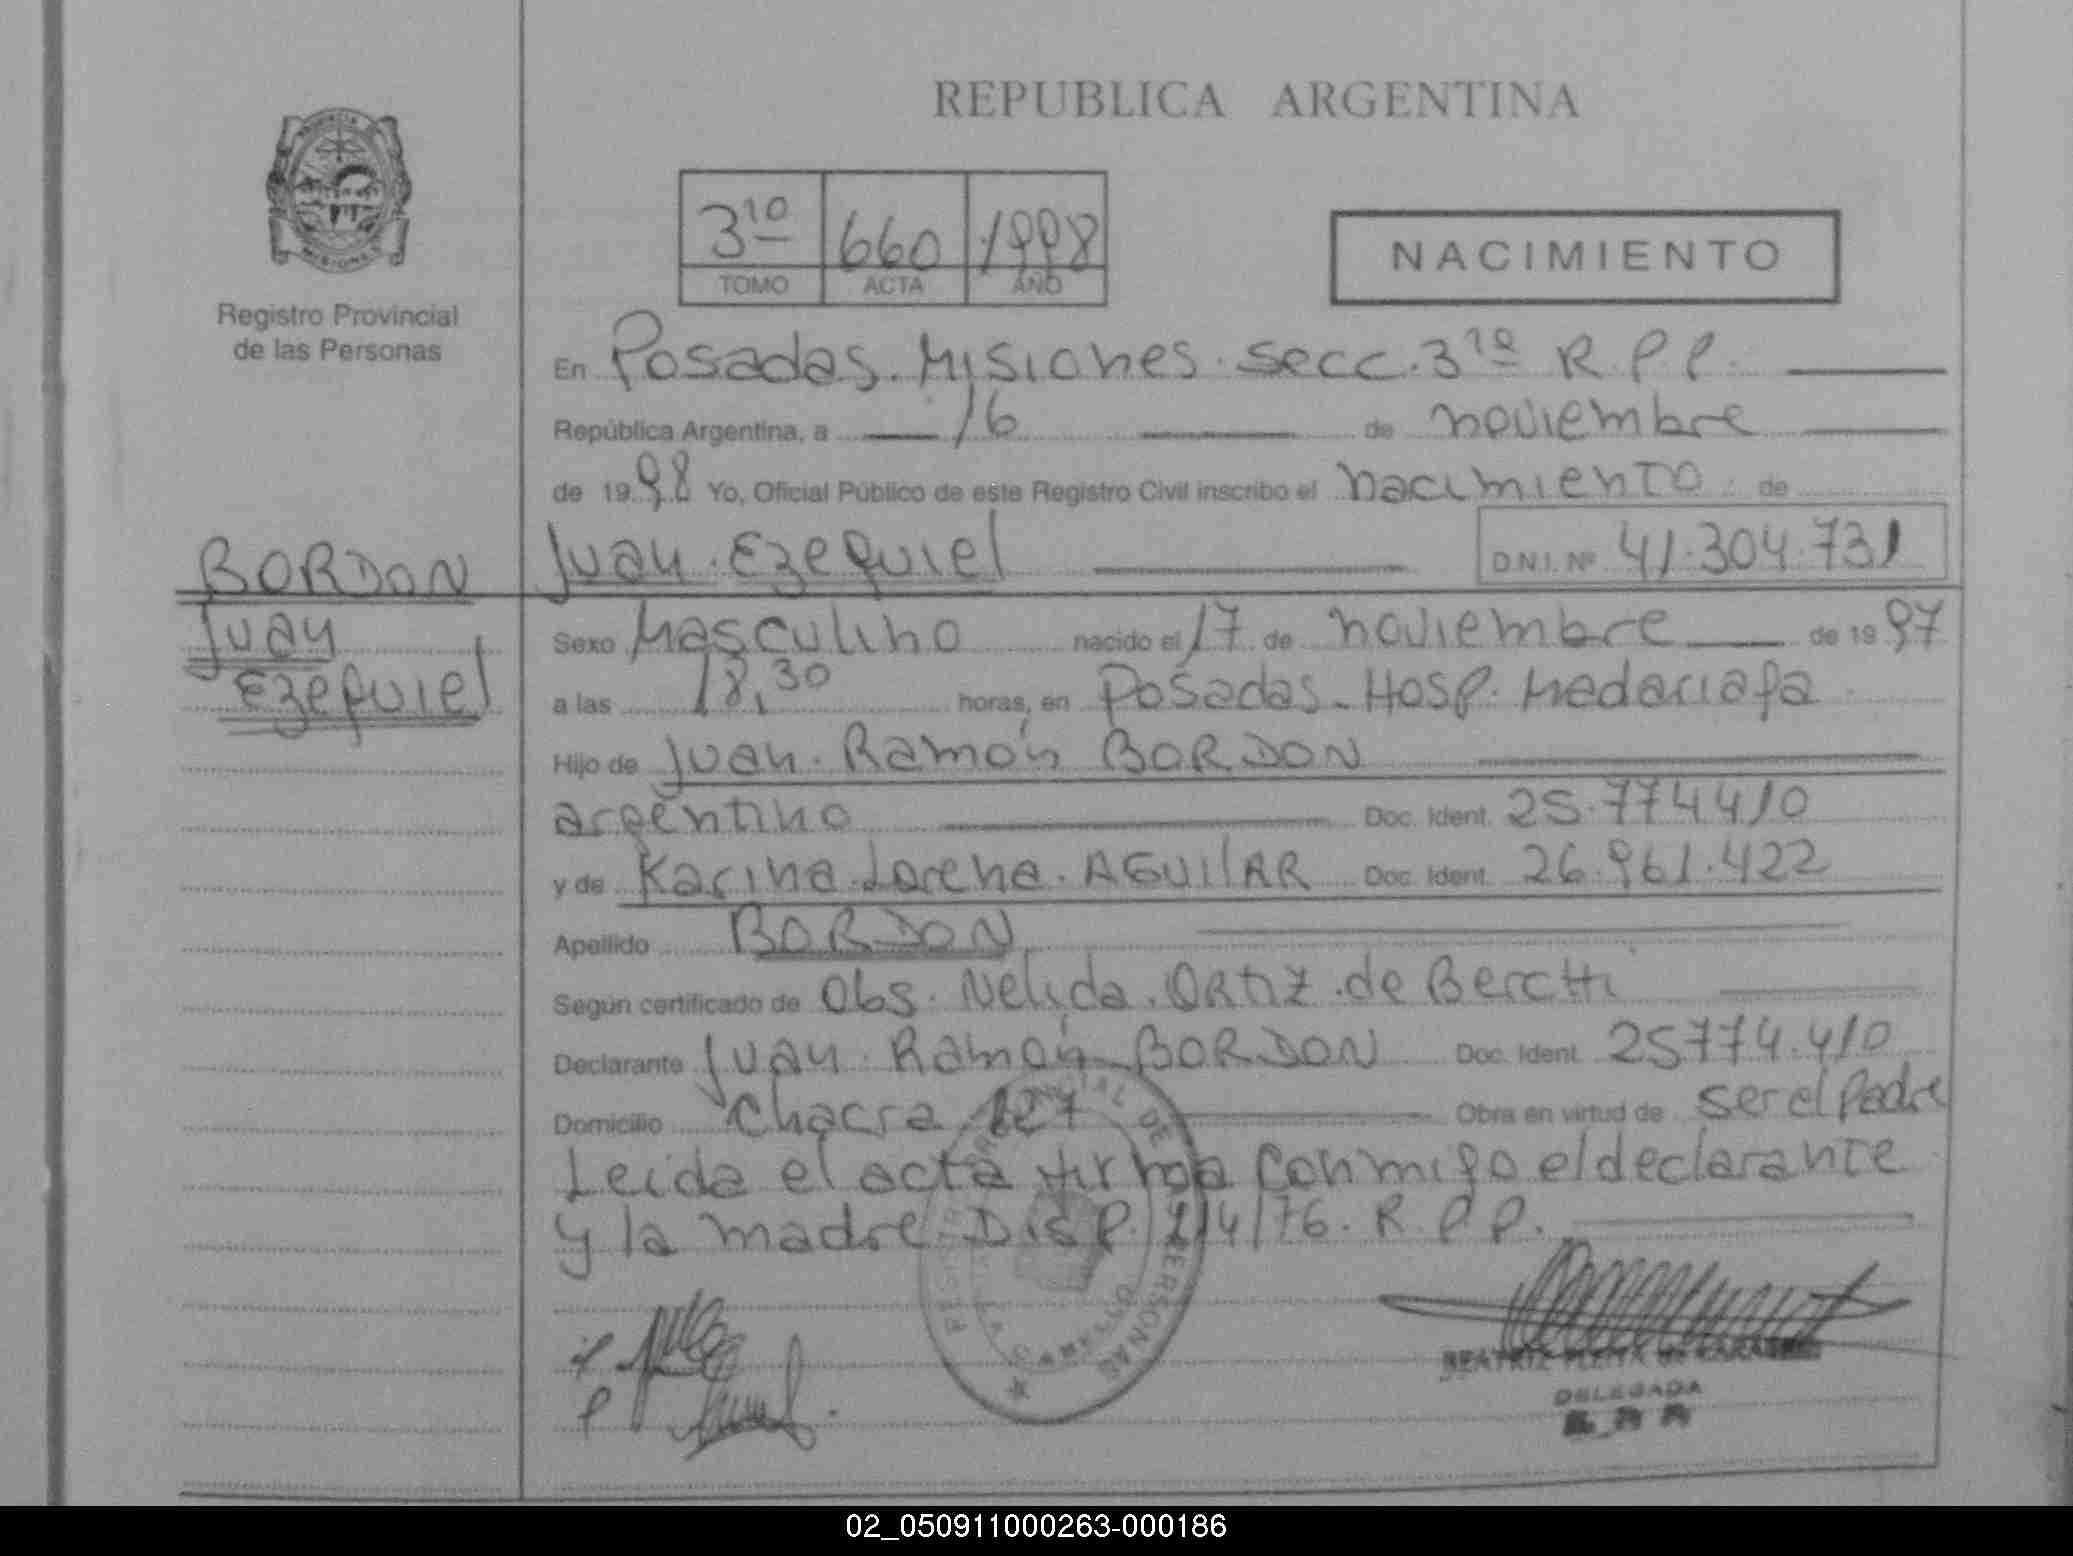 REPUBLICA ARGENTINA
PROVINCIA DE
MISIONES
Registro Provincial
de las Personas
3ro 660 1998
TOMO ACTA AÑO
NACIMIENTO
En Posadas. Misiones. secc. 3ra R.P.P.
República Argentina, a 16 de noviembre
de 1998 Yo, Oficial Público de este Registro Civil inscribo el nacimiento de
Juan. Ezequiel D.N.I. Nº 41.304.731
BORDON
Juan
Ezequiel
Sexo Masculino nacido el 17 de noviembre de 1997
a las 18,30 horas, en Posadas. Hosp. Madariaga
Hijo de Juan. Ramón BORDON
argentino Doc. Ident. 25.774410
y de Karina. Lorena. AGUILAR Doc. Ident. 26.961.422
Apellido BORDON
Según certificado de Obs. Nelida. ORTIZ. de
Declarante Juan. Ramón BORDON Doc. Ident. 25774.410
Domicilio Chacra 127 Obra en virtud de ser el Padre
Leida el acta firma conmigo el declarante
y la madre. Disp. 214/76. R.P.P.
PERSONAS
BEATRIZ
DELEGADA
02_050911000263-000186